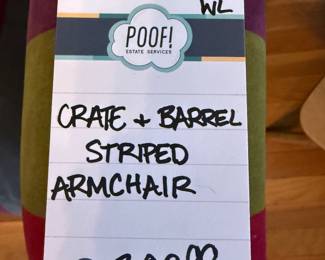 WL
POOF!
ESTATE SERVICES
CRATE + BARREL
STRIPED
ARMCHAIR